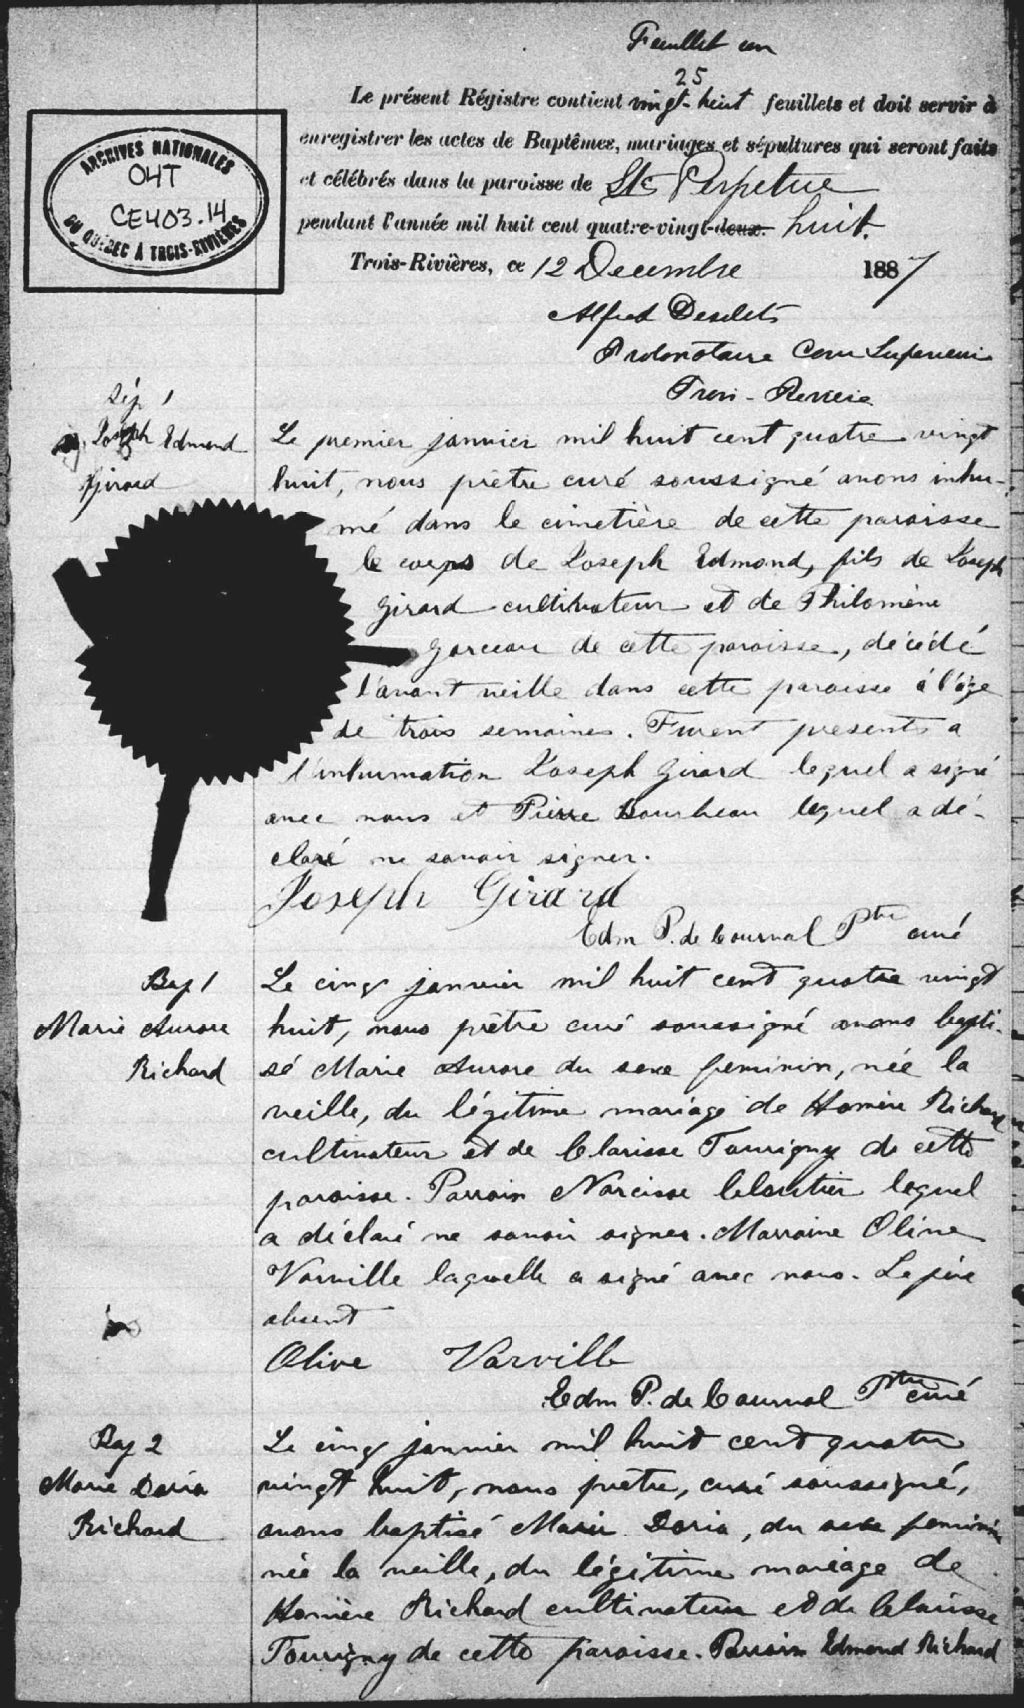 Feuillet un
25
Le présent Régistre contient vingt-huit feuillets et doit servir à
enregistrer les actes de Baptêmes, mariages et sépultures qui seront faits
et célébrés dans la paroisse de Ste Perpetue
pendant l'année mil huit cent quatre-vingt-deux huit.
Trois-Rivières, ce 12 Decembre 1887
ARCHIVES NATIONALES
04T
CE403.14
DU QUÉBEC À TROIS-RIVIÈRES
Alfred Desilets
Protonotaire Cour Superieure
Trois-Rivieres
Sép 1
Joseph Edmond
Girard
Le premier janvier mil huit cent quatre vingt
huit, nous prêtre curé soussigné avons inhu-
mé dans le cimetière de cette paroisse
le corps de Joseph Edmond, fils de Joseph
Girard cultivateur et de Philomène
Garceau de cette paroisse, décédé
l'avant veille dans cette paroisse à l'âge
de trois semaines. Furent presents a
l'inhumation Joseph Girard lequel a signé
avec nous et Pierre Bourbeau lequel a dé-
claré ne savoir signer.
Joseph Girard
Edm P. de Courval Ptre curé
Bap 1
Marie Aurore
Richard
Le cinq janvier mil huit cent quatre vingt
huit, nous prêtre curé soussigné avons bapti-
sé Marie Aurore du sexe feminin, née la
veille, du légitime mariage de Homère Richard
cultivateur et de Clarisse Tourigny de cette
paroisse. Parrain Narcisse Cloutier lequel
a déclaré ne savoir signer. Marraine Olive
Varville laquelle a signé avec nous. Le père
absent
Olive Varville
Edm P. de Courval Ptre curé
Bap 2
Marie Doria
Richard
Le cinq janvier mil huit cent quatre
vingt huit, nous prêtre, curé soussigné,
avons baptisé Marie Doria, du sexe feminin
née la veille, du légitime mariage de
Homère Richard cultivateur et de Clarisse
Tourigny de cette paroisse. Parrain Edmond Richard